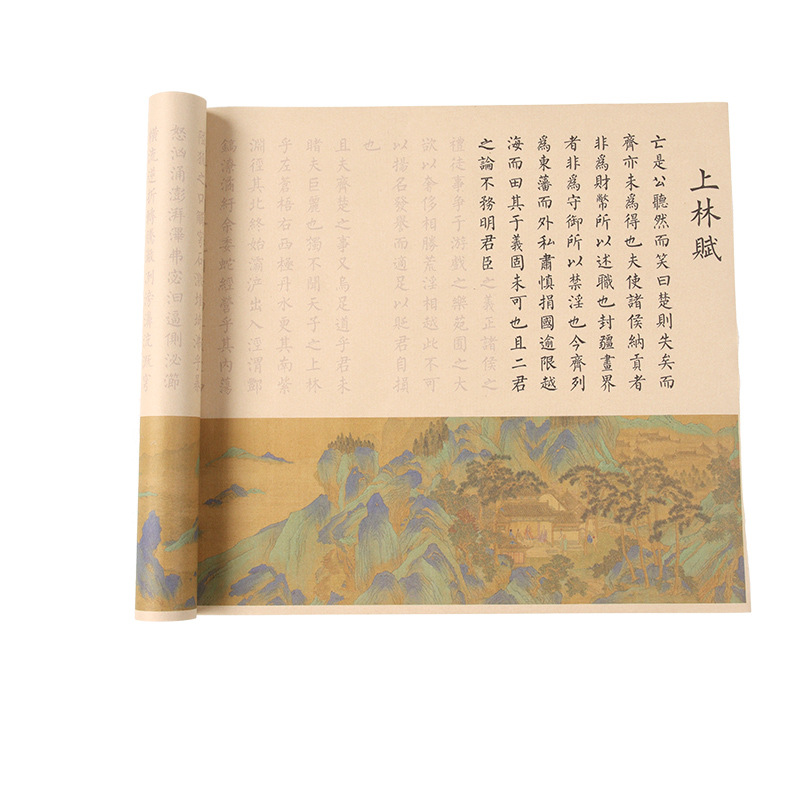 上林賦
亡是公聽然而笑曰楚則失矣而
齊亦未爲得也夫使諸侯納貢者
非爲財幣所以述職也封疆畫界
者非爲守御所以禁淫也今齊列
爲東藩而外私肅慎捐國逾限越
海而田其于義固未可也且二君
之論不務明君臣之義正諸侯之
禮徒事爭于游戲之樂苑囿之大
欲以奢侈相勝荒淫相越此不可
以揚名發譽而適足以貶君自損
也
且夫齊楚之事又烏足道乎君未
睹夫巨麗也獨不聞天子之上林
乎左蒼梧右西極丹水更其南紫
淵徑其北終始灞浐出入涇渭酆
鎬潦潏紆余委蛇經營乎其內蕩
怒汹涌澎湃滭弗宓汩逼側泌瀄